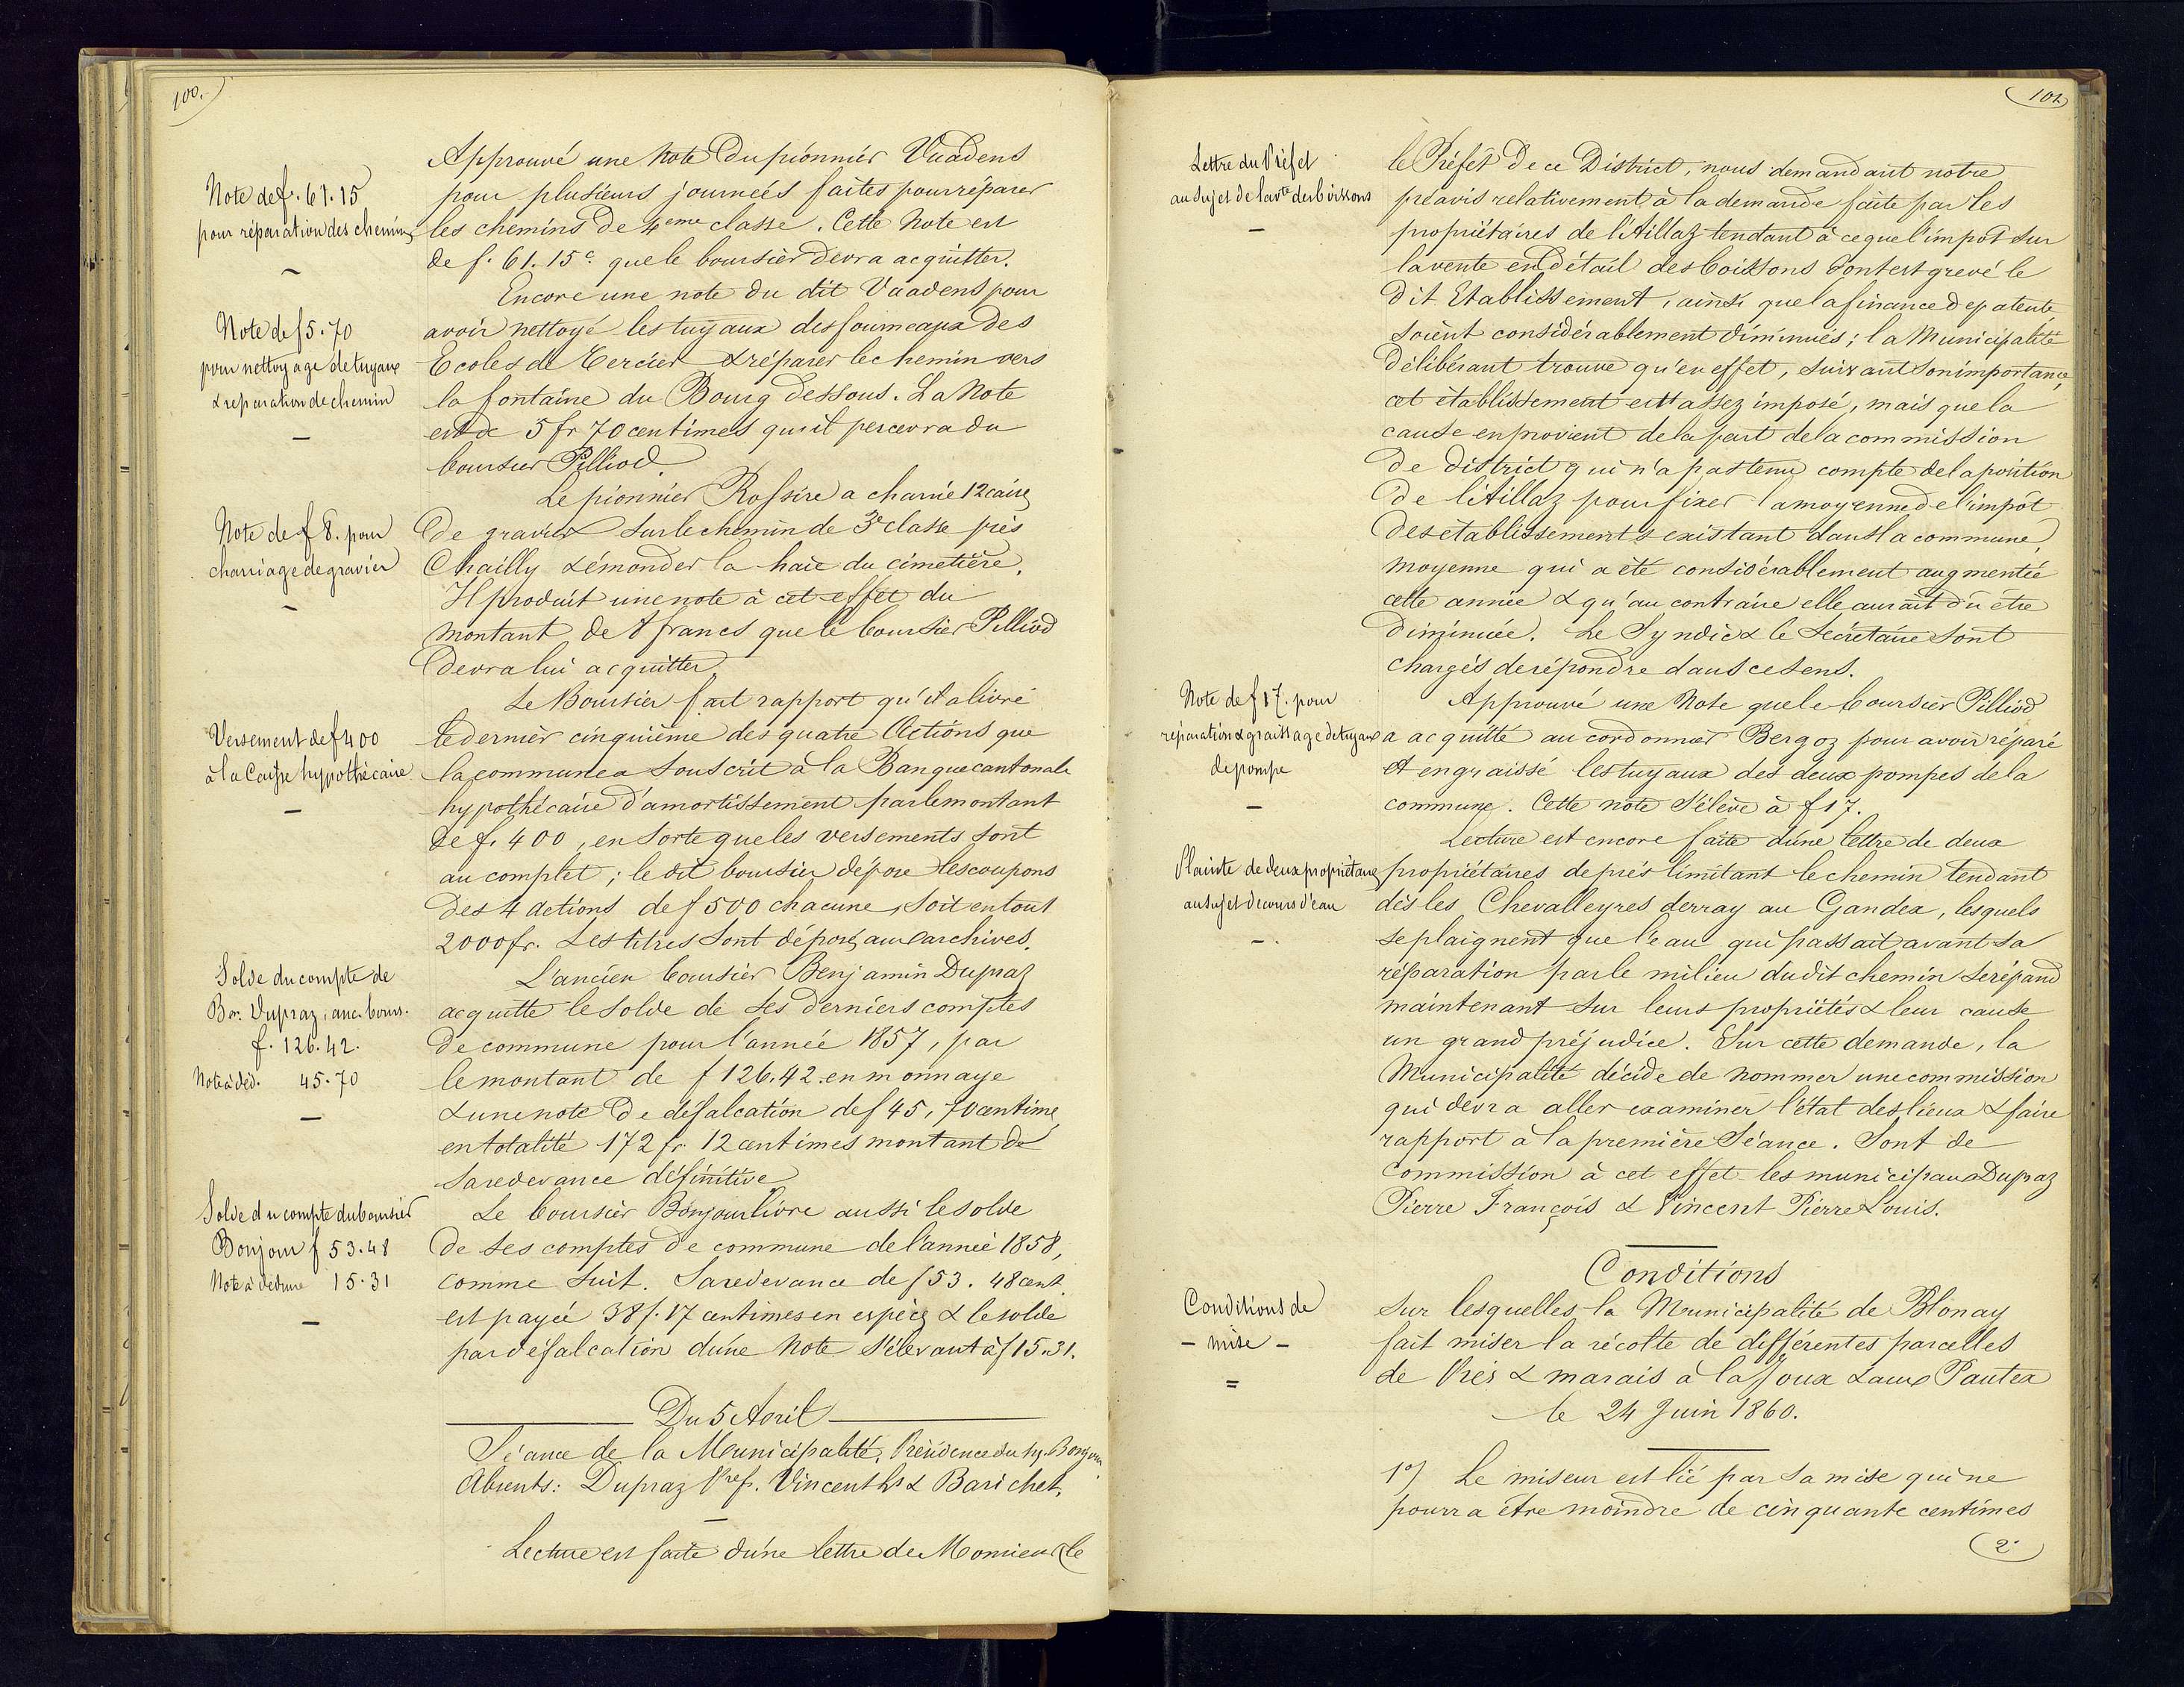 100.
Note de f. 61.15
pour réparation des chemins
Note de f 5.70
pour nettoyage de tuyaux
& reparation de chemin
Note de f 8. pour
charriage de gravier
Versement de f 400
à la Caisse hypothécaire
Solde du compte de
Bin. Dupraz, anc. bours.
f. 126.42.
Note à déd. 45.70
Solde du compte du boursier
Bonjour f 53.48
Note à déduire 15.31
Approuvé une Note du pionnier Vuadens
pour plusieurs journées faites pour réparer
les chemins de 4eme classe. Cette Note est
de f. 61.15 c. que le boursier devra acquitter.
Encore une note du dit Vuadens pour
avoir nettoyé les tuyaux des fourneaux des
Ecoles de Cercier & réparer le chemin vers
la fontaine du Bourg dessous. La Note
est de 5 fr 70 centimes qu'il percevra du
boursier Pilliod.
Le pionnier Rossire a charrié 12 caisses
de gravier sur le chemin de 3e classe près
Chailly & émonder la haie du cimetière.
Il produit une note à cet effet du
montant de 8 francs que le boursier Pilliod
devra lui acquitter.
Le Boursier fait rapport qu'il a livré
le dernier cinquième des quatre Actions que
la commune a souscrit à la Banque cantonale
hypothécaire d'amortissement par le montant
de f. 400, en sorte que les versements sont
au complet; le dit boursier dépose les coupons
des 4 actions de f 500 chacune, soit en tout
2000 fr. Les titres sont déposés aux archives.
L'ancien boursier Benjamin Dupraz
acquitte le solde de ses derniers comptes
de commune pour l'année 1857, par
le montant de f 126.42. en monnaye
& une note de défalcation de f 45, 70 centimes
en totalité 172 fr 12 centimes montant de
sa redevance définitive.
Le boursier Bonjour livre aussi le solde
de ses comptes de commune de l'année 1858,
comme suit. Sa redevance de f 53. 48 cent.
est payée 38 f. 17 centimes en espèces & le solde
par défalcation d'une Note s'élevant à f 15.31.
Du 5 Avril
Séance de la Municipalité. Présidence du sy. Bonjour
Absents: Dupraz P. f. Vincent Ls & Barichet.
Lecture est faite d'une lettre de Monsieur le
101
Lettre du Préfet
au sujet de la vte des boissons
Note de f 17. pour
réparation & graissage de tuyaux
de pompe
Plainte de deux propriétaires
au sujet de cours d'eau
Conditions de
- mise -
le Préfet de ce District, nous demandant notre
préavis relativement à la demande faite par les
propriétaires de l'Aillaz tendant à ce que l'impôt sur
la vente en détail des boissons dont est grevé le
dit Etablissement, ainsi que la finance de patente
soient considérablement diminués; la Municipalité
délibérant trouve qu'en effet, suivant son importance,
cet établissement est assez imposé, mais que la
cause en provient de la part de la commission
de district qui n'a pas tenu compte de la position
de l'Aillaz pour fixer la moyenne de l'impôt
des établissements existant dans la commune,
moyenne qui a été considérablement augmentée
cette année & qu'au contraire elle aurait dû être
diminuée. Le Syndic & le Secrétaire sont
chargés de répondre dans ce sens.
Approuvé une Note que le boursier Pilliod
a acquitté au cordonnier Bergoz pour avoir réparé
et engraissé les tuyaux des deux pompes de la
commune. Cette note s'élève à f 17.
Lecture est encore faite d'une lettre de deux
propriétaires de prés limitant le chemin tendant
dès les Chevalleyres derray au Gandex, lesquels
se plaignent que l'eau qui passait avant sa
réparation par le milieu du dit chemin se répand
maintenant sur leurs propriétés & leur cause
un grand préjudice. Sur cette demande, la
Municipalité décide de nommer une commission
qui devra aller examiner l'état des lieux & faire
rapport à la première Séance. Sont de
commission à cet effet les municipaux Dupraz
Pierre François & Vincent Pierre Louis.
Conditions
sur lesquelles la Municipalité de Blonay
fait miser la récolte de différentes parcelles
de Prés & marais à la Joux & aux Pautex
le 24 Juin 1860.
1°) Le miseur est lié par sa mise qui ne
pourra être moindre de cinquante centimes
2°